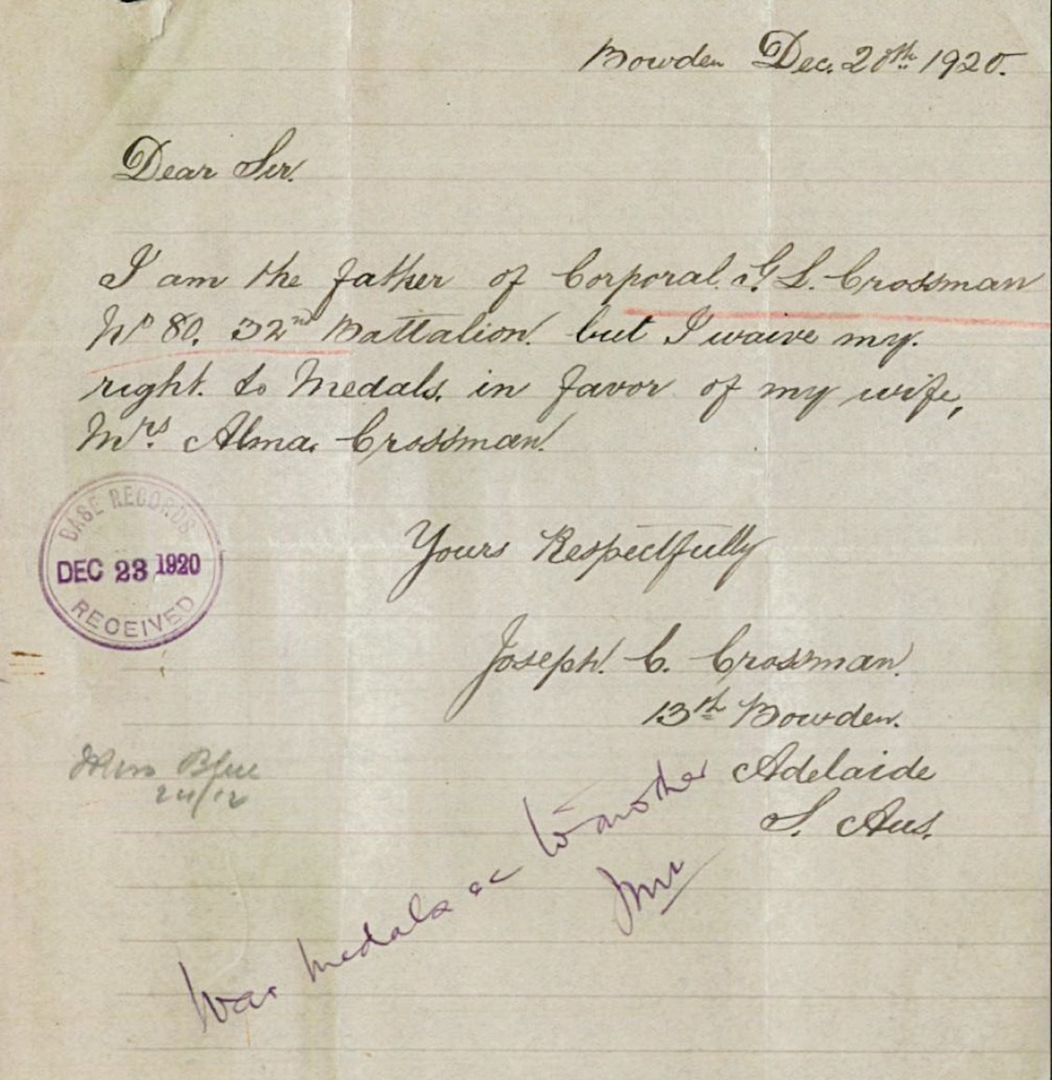 Bowden Dec. 20th 1920.
Dear Sir.
I am the father of Corporal. G. L. Crossman
No 80. 32nd Battalion. but I waive my.
right. to Medals. in favor of my wife,
Mrs. Alma. Crossman.
BASE RECORDS
DEC 23 1920
RECEIVED
Yours Respectfully
Joseph. C. Crossman.
13th Bowden.
Adelaide
S. Aus.
Miss
24/12
War medals &c to mother